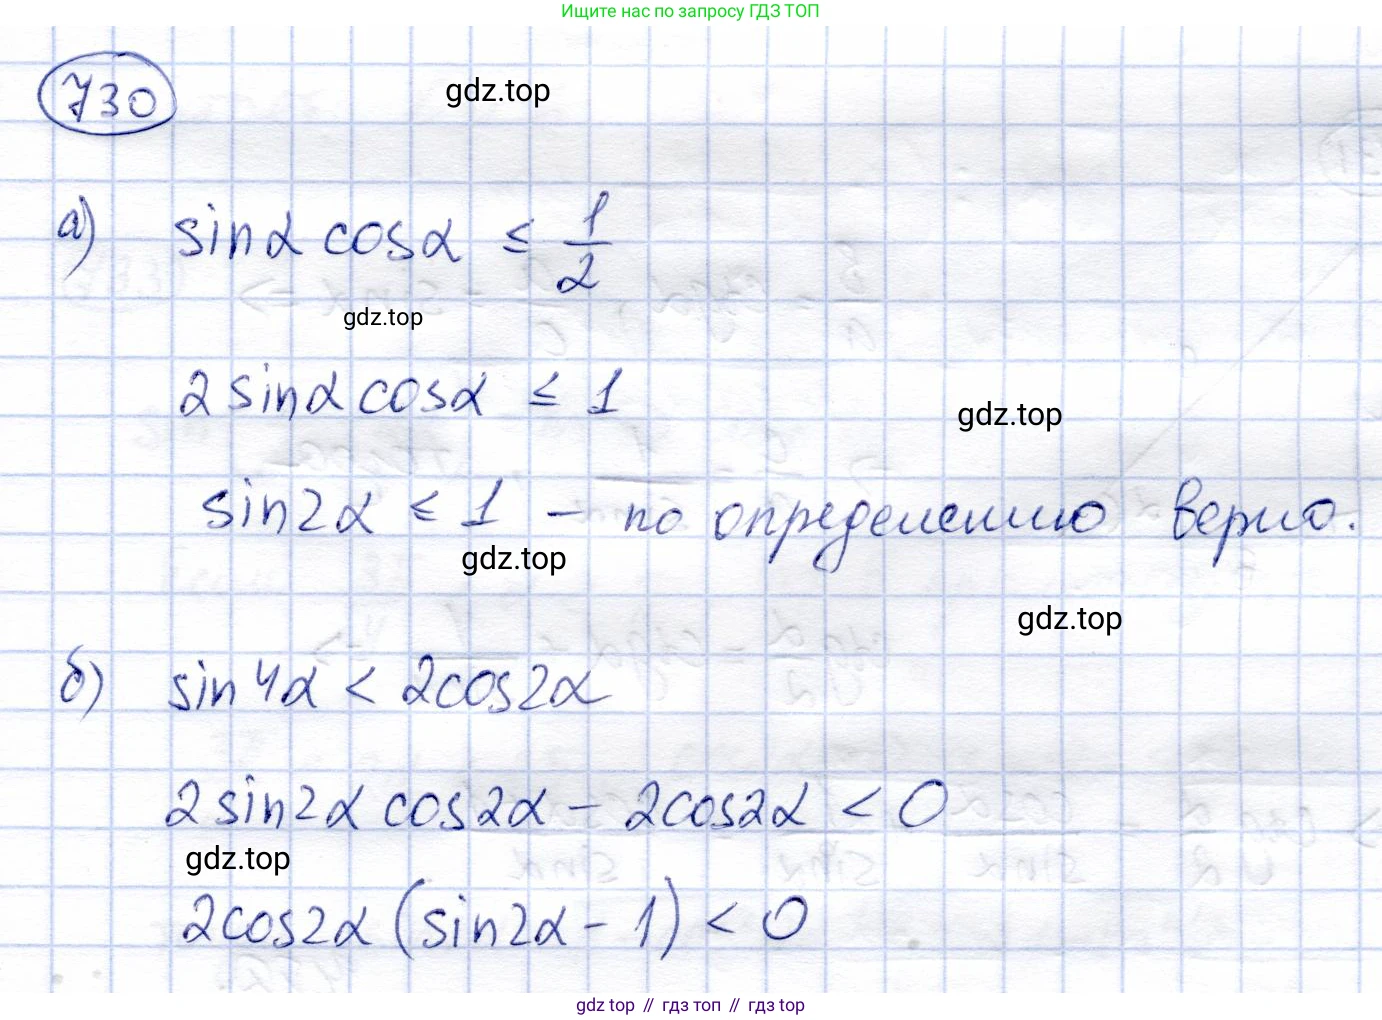 Ищите нас по запросу ГДЗ ТОП
730
gdz.top
а) sinα cosα ≤ 1/2
gdz.top
2 sinα cosα ≤ 1
gdz.top
sin2α ≤ 1 – по определению верно.
gdz.top
gdz.top
б) sin4α < 2cos2α
2 sin2α cos2α – 2cos2α < 0
gdz.top
2cos2α (sin2α – 1) < 0
gdz top // гдз топ // гдз top